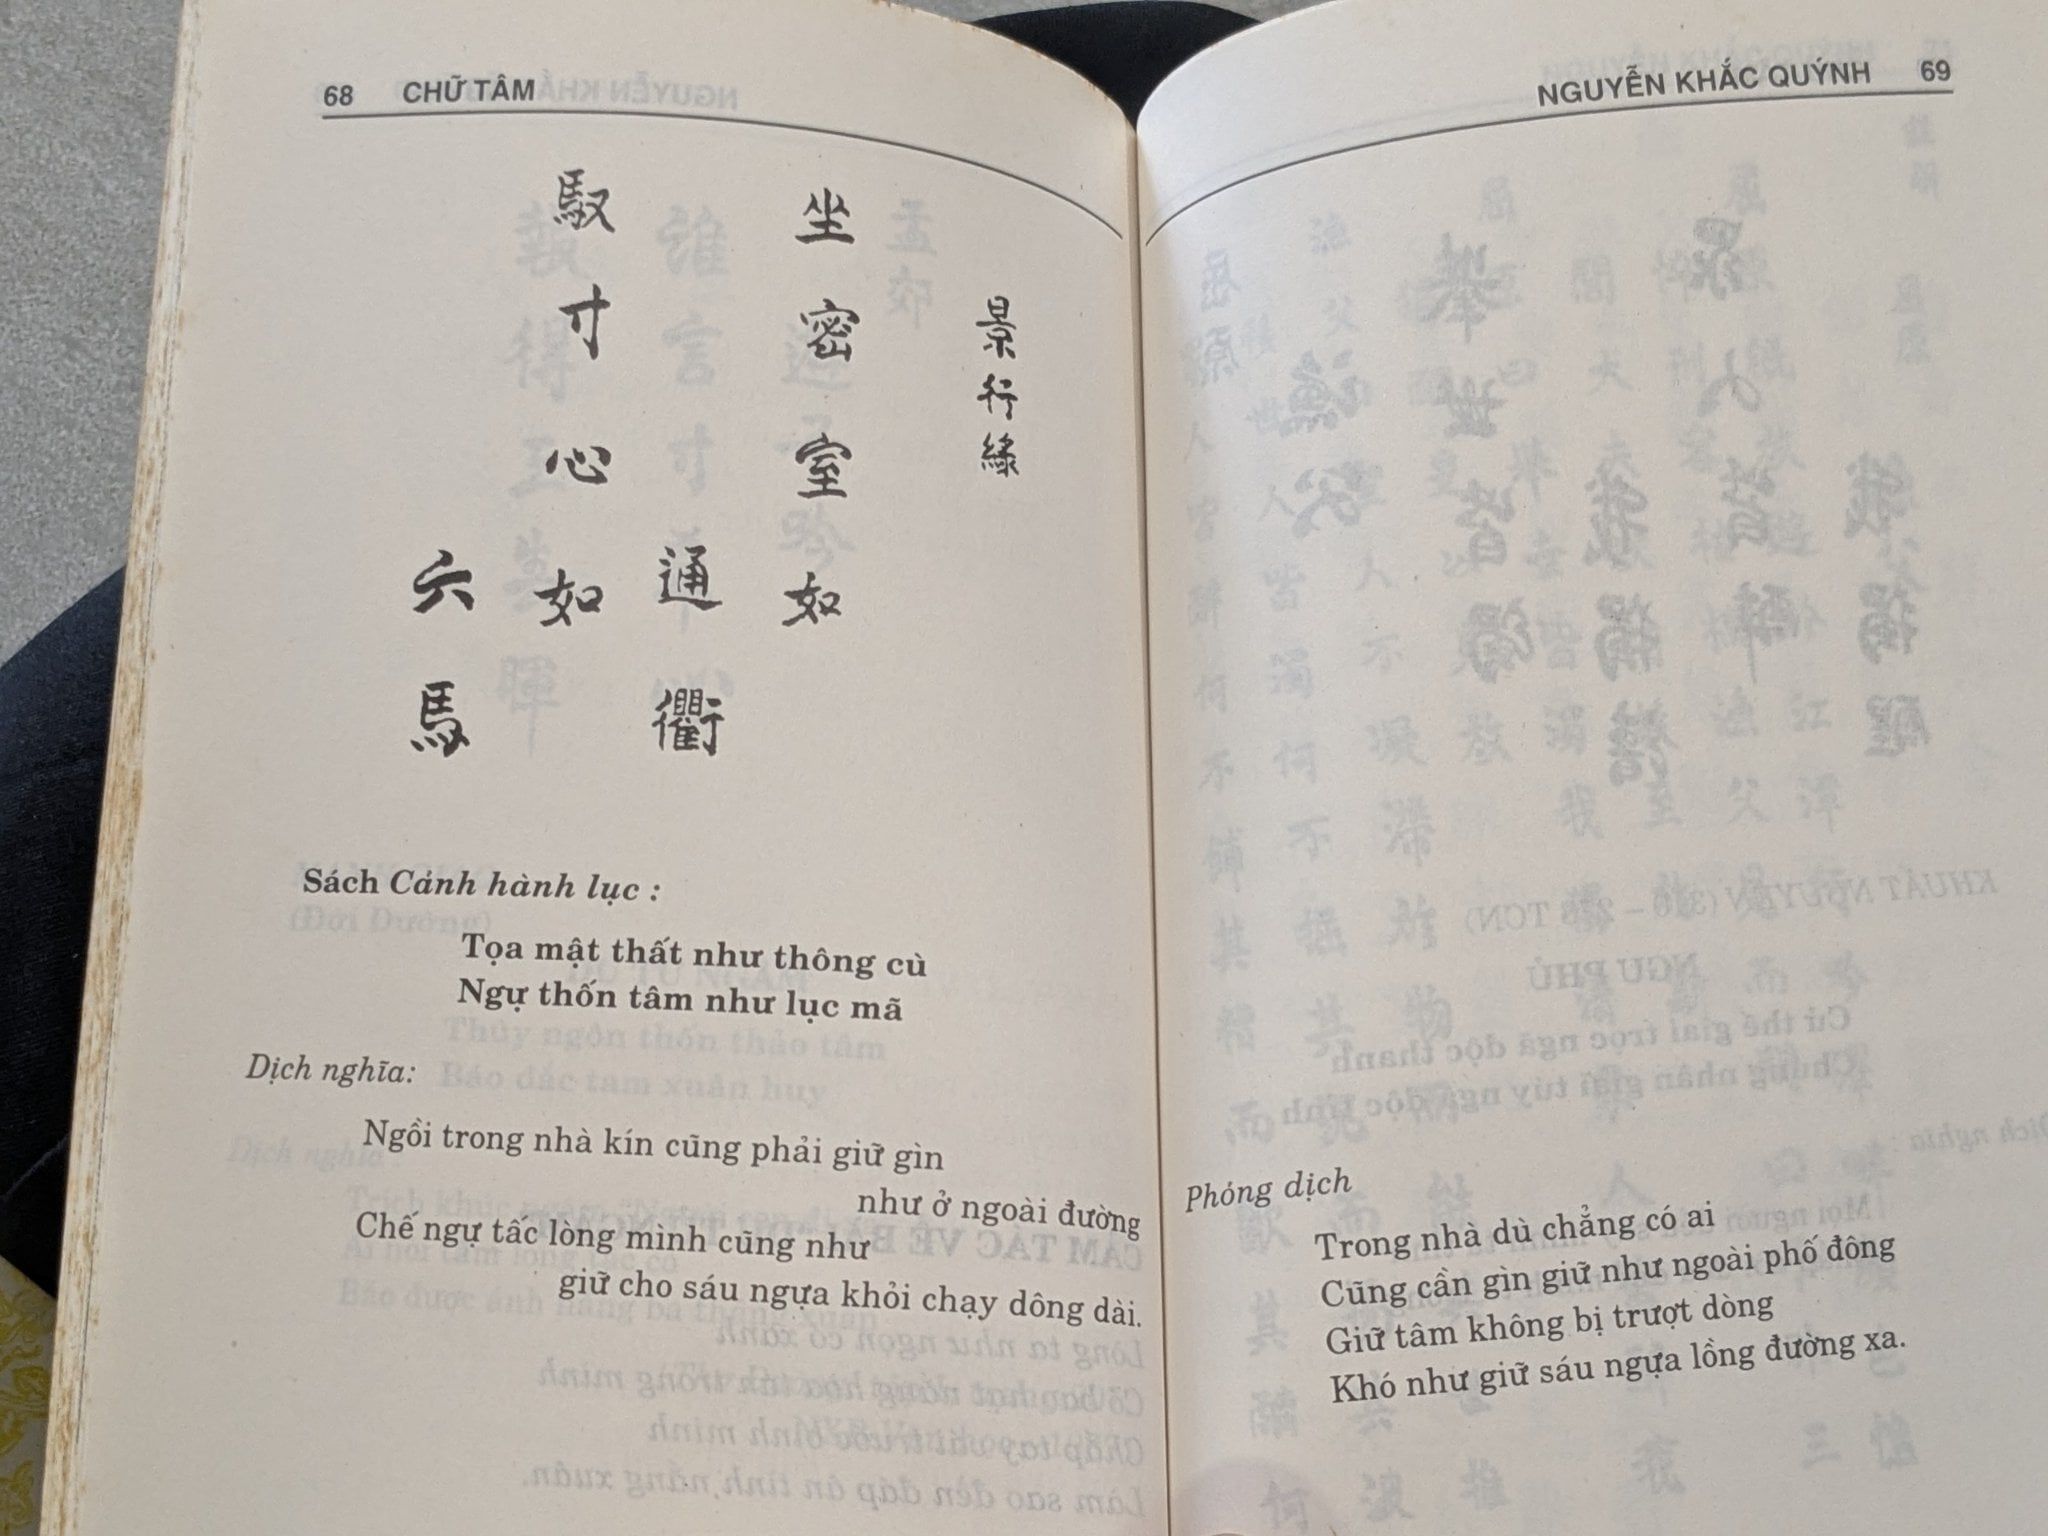 68 CHỮ TÂM
景行緣
坐密室如
通衢
馭寸心如
六馬
Sách Cảnh hành lục :
Tọa mật thất như thông cù
Ngự thốn tâm như lục mã
Dịch nghĩa:
Ngồi trong nhà kín cũng phải giữ gìn
như ở ngoài đường
Chế ngự tấc lòng mình cũng như
giữ cho sáu ngựa khỏi chạy dông dài.
NGUYỄN KHẮC QUÝNH 69
Phóng dịch
Trong nhà dù chẳng có ai
Cũng cần gìn giữ như ngoài phố đông
Giữ tâm không bị trượt dòng
Khó như giữ sáu ngựa lồng đường xa.